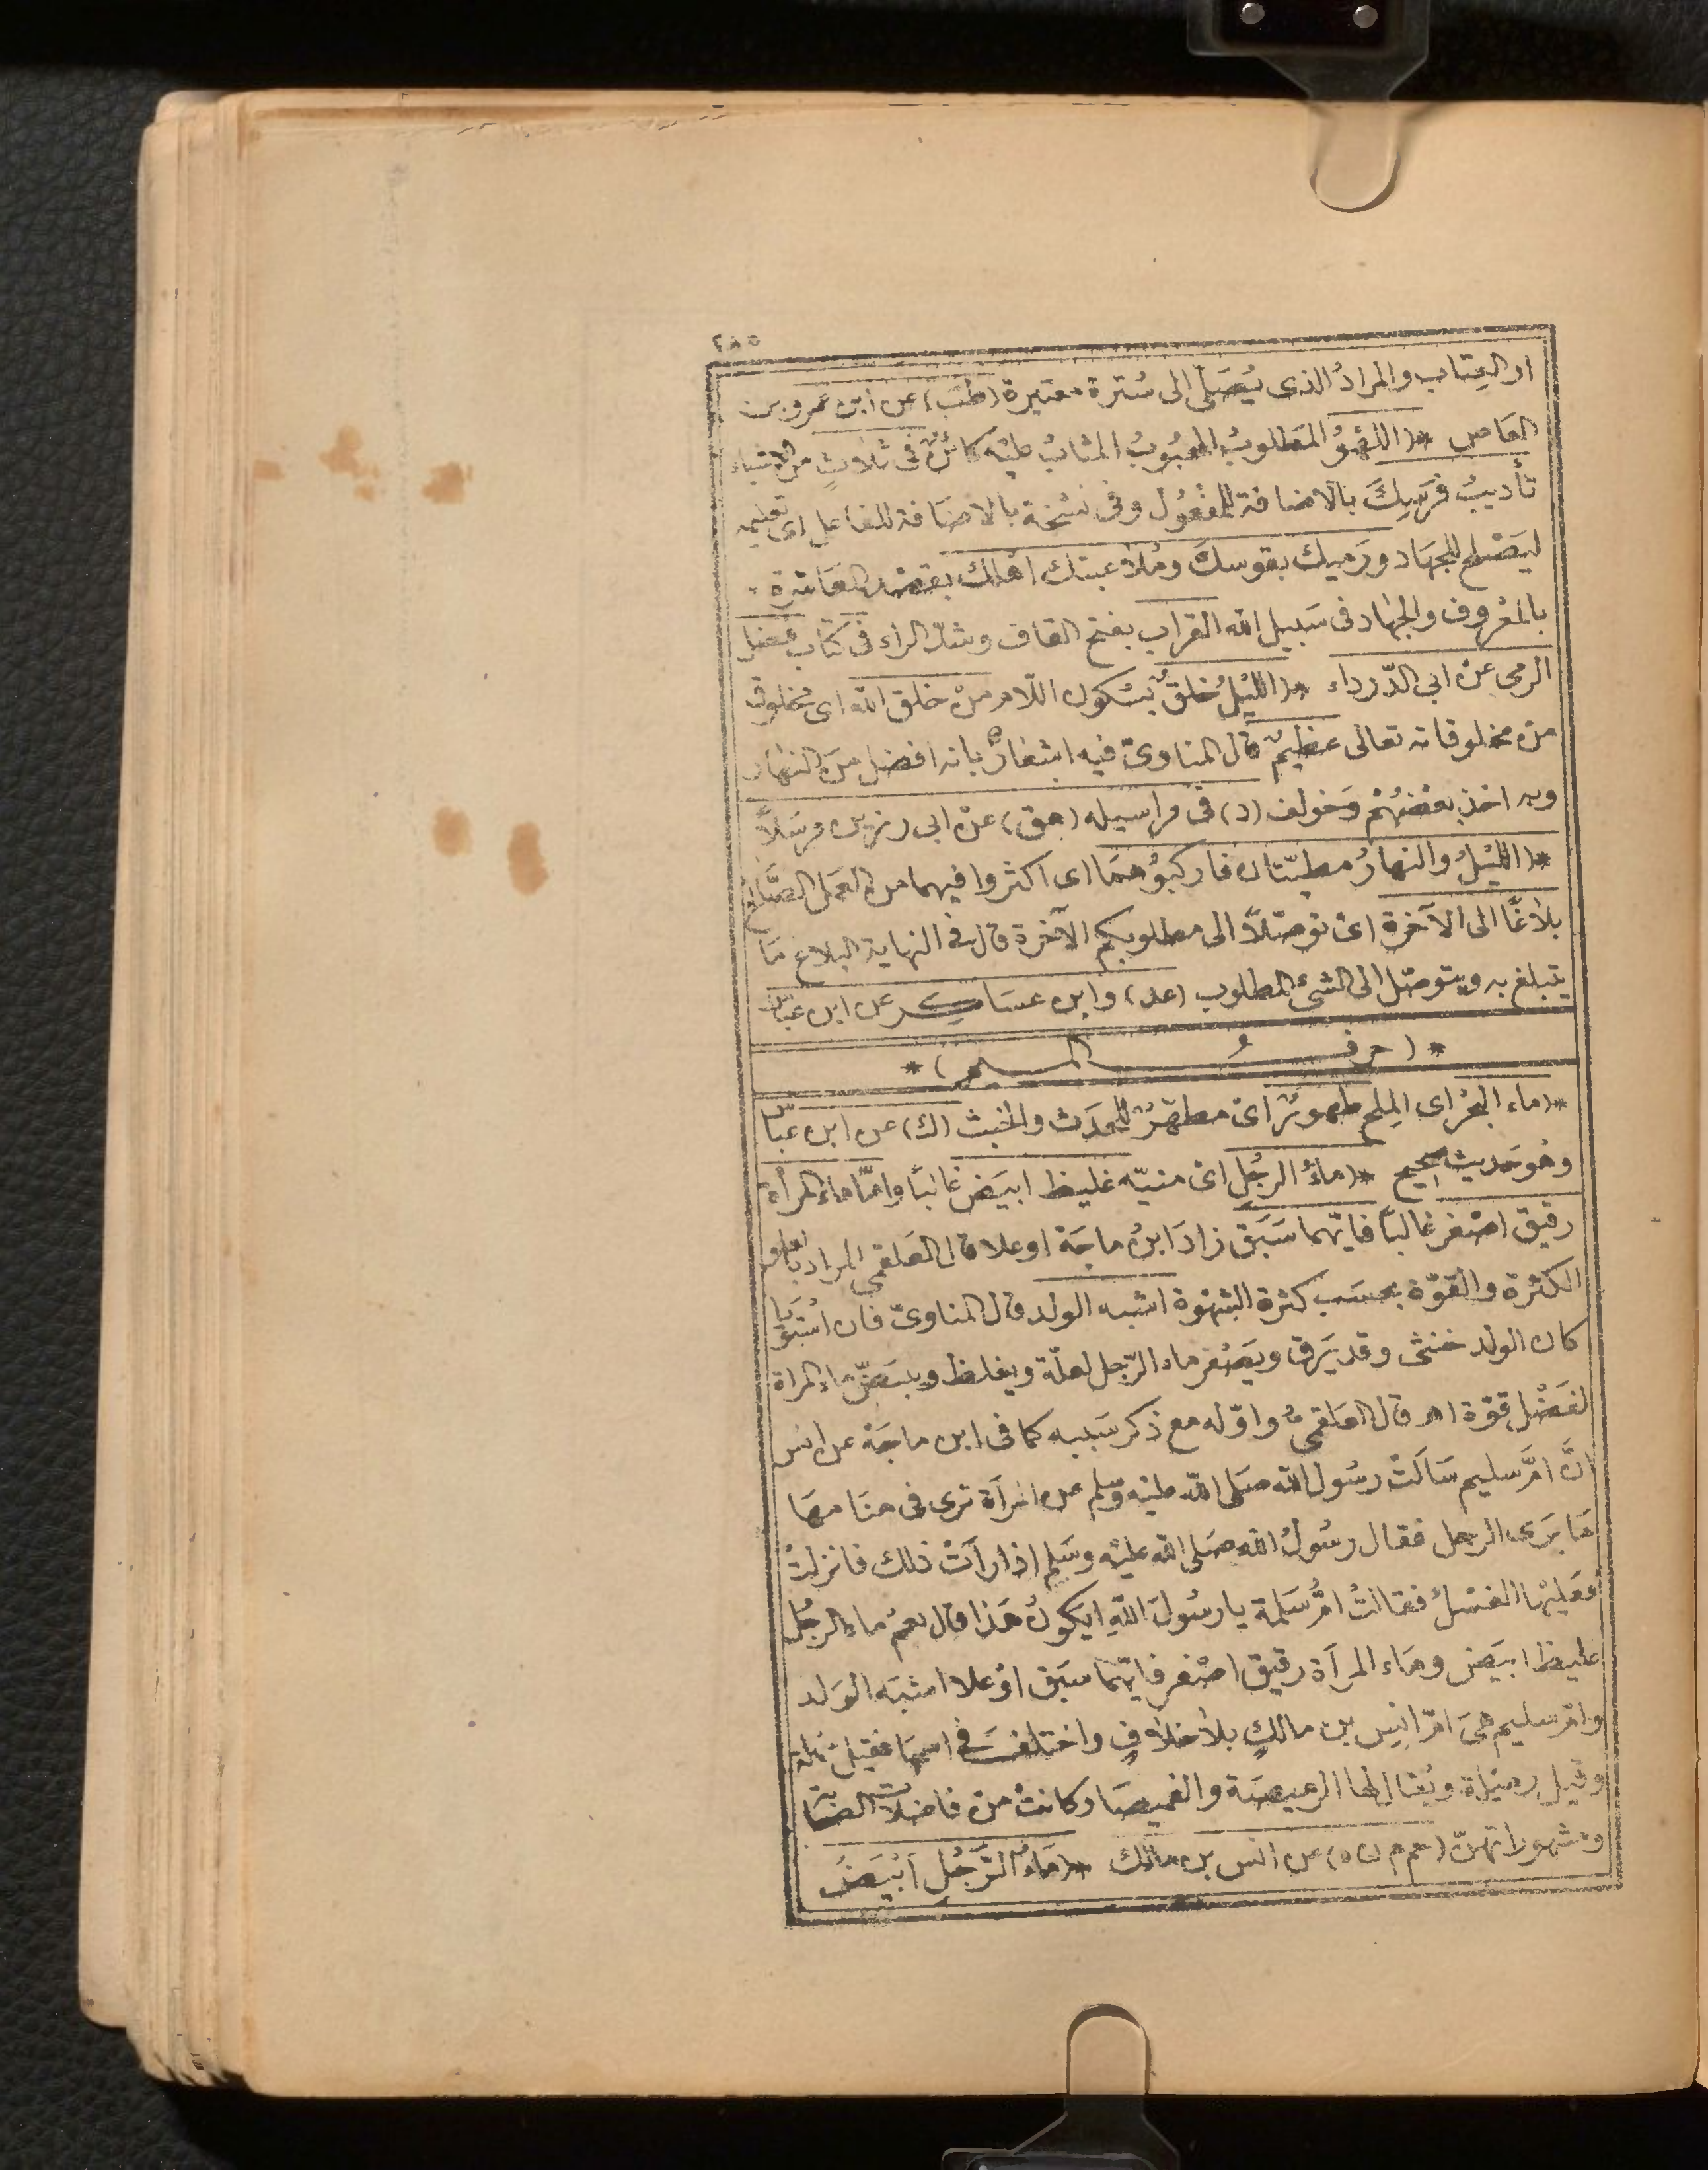 ٢٨٥
او العِتاب والمرادُ الذى يُصَلى الى سُترة معتبرة (طب) عن ابن عمرو بن
العَاص * (اللهْوُ المَطلوبُ المحبُوبُ المثابُ عليْه كائنٌ فى ثلاثٍ من الاشياء
تأديبُ فرَسِكَ بالاضافة للمفعُول وفى نسْخة بالاضَافة للفاعل اى تعليمه
ليَصْلح للجهَاد ورَميك بقوسكَ ومُلاعبتك اهلك بقصْد المعَاشرة
بالمَعْروف والجهاد فى سَبيل الله القراب بفتح القاف وشدّ الراء فى كتاب فضل
الرمى عنْ ابى الدّرداء * (الليْلُ خلقٌ بسْكون اللّام منْ خلق الله اى مخلوق
منْ مخلوقاته تعالى عظيمٌ قال المناوىّ فيه اشعَارٌ بانه افضل منَ النهار
وبه اخذ بعْضهُمْ وَخولف (د) فى مراسيله (هق) عنْ ابى رزين مرسَلاً
* (الليْلُ والنهارُ مطيّتان فاركبُوهمَا اى اكثروا فيهما من العَمل الصَّالح
بلاغًا الى الآخرة اىْ توصّلاً الى مطلوبكم الآخرة قال فى النهاية البلاغ مَا
يتبلغ به ويتوصّل الى الشئ المطلوب (عد) وابن عسَاكر عن ابن عبّاس
* (حرفُ الميم) *
* (ماء البحْر اى المِلح طهورٌ اىْ مطهّرٌ للحدَث والخبث (ك) عن ابن عبّاس
وهُو حَديث صحيح * (ماءُ الرجُل اىْ منيّه غليظ ابيَض غالبًا وامّا ماء المرأة
رقيق اصْفر غالبًا فايّهما سَبَق زادَ ابنُ ماجَة او علا قال العَلقمى المراد بالعلو
الكثرة والقوّة بحسَب كثرة الشهْوة اشبه الولد قال المناوىّ فان استويا
كان الولد خنثى وقد يَرق ويَصْفر ماء الرّجل لعلّة ويغلظ ويبيَضّ ماء المراة
لفَضْل قوّة اهـ قال العَلقمىُّ واوّله مع ذكر سَببه كما فى ابن ماجَة عن انس
انَّ امَّ سليم سَالَتْ رسُول الله صَلى الله عليْه وَسلم عن امْرأة ترى فى منامهَا
مَا يرَى الرجل فقال رسُولُ الله صَلى الله عليْه وسَلم اذا رأتْ ذلك فانزلتْ
فعَليْها الغسْلُ فقالتْ امُّ سَلمة يا رسُولَ اللهِ ايكونُ هَذا قال نعمْ ماء الرجُل
غليظ ابيَض ومَاء المرأة رقيق اصْفر فايّهما سَبق اوْ علا اشبَه الوَلد
وامّ سليم هىَ امّ انس بن مالكٍ بلاخلافٍ واختلفَ فى اسمهَا فقيل سَهلة
وقيل رميْلة ويُقال لها الرميصَة والغميصَا وكانتْ منْ فاضلات الصحَابيّات
ومشهوراتهنّ (حم م ن ه) عن انس بن مالك * (مَاءُ الرَّجُل اَبْيَضُ